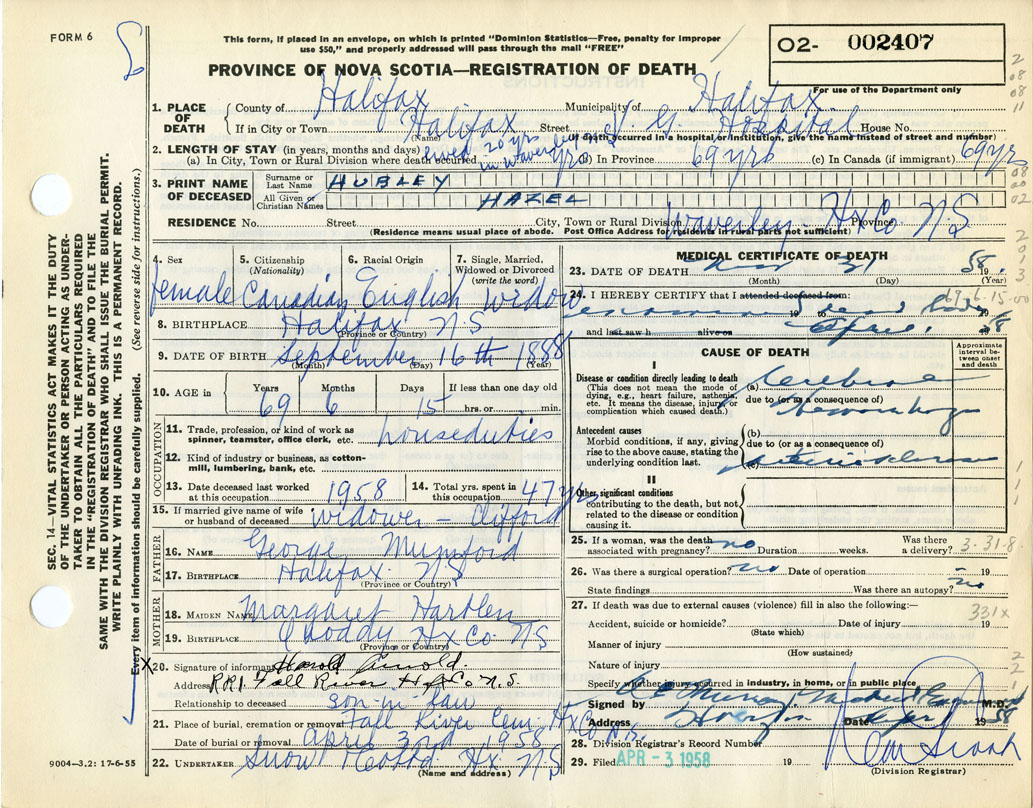 FORM 6
This form, if placed in an envelope, on which is printed "Dominion Statistics—Free, penalty for improper
use $50," and properly addressed will pass through the mail "FREE"
O2- 002407
For use of the Department only
PROVINCE OF NOVA SCOTIA—REGISTRATION OF DEATH
1. PLACE OF DEATH { County of Halifax Municipality of Halifax
If in City or Town Halifax (Name) Street V. G. Hospital House No.
(If death occurred in a hospital or institution, give the name instead of street and number)
2. LENGTH OF STAY (in years, months and days) 20 yrs in Waverley
(a) In City, Town or Rural Division where death occurred (b) In Province 69 yrs (c) In Canada (if immigrant) 69 yrs
3. PRINT NAME OF DECEASED { Surname or Last Name HUBLEY
All Given or Christian Names HAZEL
RESIDENCE No. Street City, Town or Rural Division Waverley Hx Co Province N S
(Residence means usual place of abode. Post Office Address for residents in rural parts not sufficient)
4. Sex female
5. Citizenship (Nationality) Canadian
6. Racial Origin English
7. Single, Married, Widowed or Divorced (write the word) widow
8. BIRTHPLACE Halifax N S
(Province or Country)
9. DATE OF BIRTH September 16th 1888
(Month) (Day) (Year)
10. AGE in Years 69 Months 6 Days 15 If less than one day old hrs. or min.
OCCUPATION
11. Trade, profession, or kind of work as spinner, teamster, office clerk, etc. houseduties
12. Kind of industry or business, as cotton-mill, lumbering, bank, etc.
13. Date deceased last worked at this occupation 1958
14. Total yrs. spent in this occupation 47 yrs
15. If married give name of wife or husband of deceased widower – Clifford
FATHER
16. NAME George Mumford
17. BIRTHPLACE Halifax N S
(Province or Country)
MOTHER
18. MAIDEN NAME Margaret Hartlen
19. BIRTHPLACE Hx Co N S
(Province or Country)
X 20. Signature of informant Harold Arnold.
Address RR1 Fall River Hfx Co N.S.
Relationship to deceased son-in-law
21. Place of burial, cremation or removal Fall River Cem. Hx Co N.S.
Date of burial or removal April 3rd 1958
22. UNDERTAKER Snow Hx. NS
(Name and address)
9004—3.2: 17-6-55
MEDICAL CERTIFICATE OF DEATH
23. DATE OF DEATH 31 58 19
(Month) (Day) (Year)
69-6-15-00
24. I HEREBY CERTIFY that I attended deceased from:
19 to
and last saw h alive on
CAUSE OF DEATH
Approximate interval between onset and death
I
Disease or condition directly leading to death
(This does not mean the mode of dying, e.g., heart failure, asthenia, etc. It means the disease, injury or complication which caused death.)
(a) Cerebral
due to (or as a consequence of)
Hemorrhage
Antecedent causes
Morbid conditions, if any, giving rise to the above cause, stating the underlying condition last.
(b)
due to (or as a consequence of)
(c)
II
Other significant conditions
contributing to the death, but not related to the disease or condition causing it.
25. If a woman, was the death associated with pregnancy? no Duration weeks. Was there a delivery?
3-31-8
26. Was there a surgical operation? no Date of operation 19
State findings Was there an autopsy? no
27. If death was due to external causes (violence) fill in also the following:— 331X
Accident, suicide or homicide? Date of injury 19
(State which)
Manner of injury
(How sustained)
Nature of injury
Specify whether injury occurred in industry, in home, or in public place
Signed by M.D.
Address Date 19 58
28. Division Registrar's Record Number
29. Filed APR - 3 1958 19
(Division Registrar)
SEC. 14—VITAL STATISTICS ACT MAKES IT THE DUTY
OF THE UNDERTAKER OR PERSON ACTING AS UNDER-
TAKER TO OBTAIN ALL THE PARTICULARS REQUIRED
IN THE "REGISTRATION OF DEATH" AND TO FILE THE
SAME WITH THE DIVISION REGISTRAR WHO SHALL ISSUE THE BURIAL PERMIT.
WRITE PLAINLY WITH UNFADING INK. THIS IS A PERMANENT RECORD.
Every item of information should be carefully supplied. (See reverse side for instructions.)